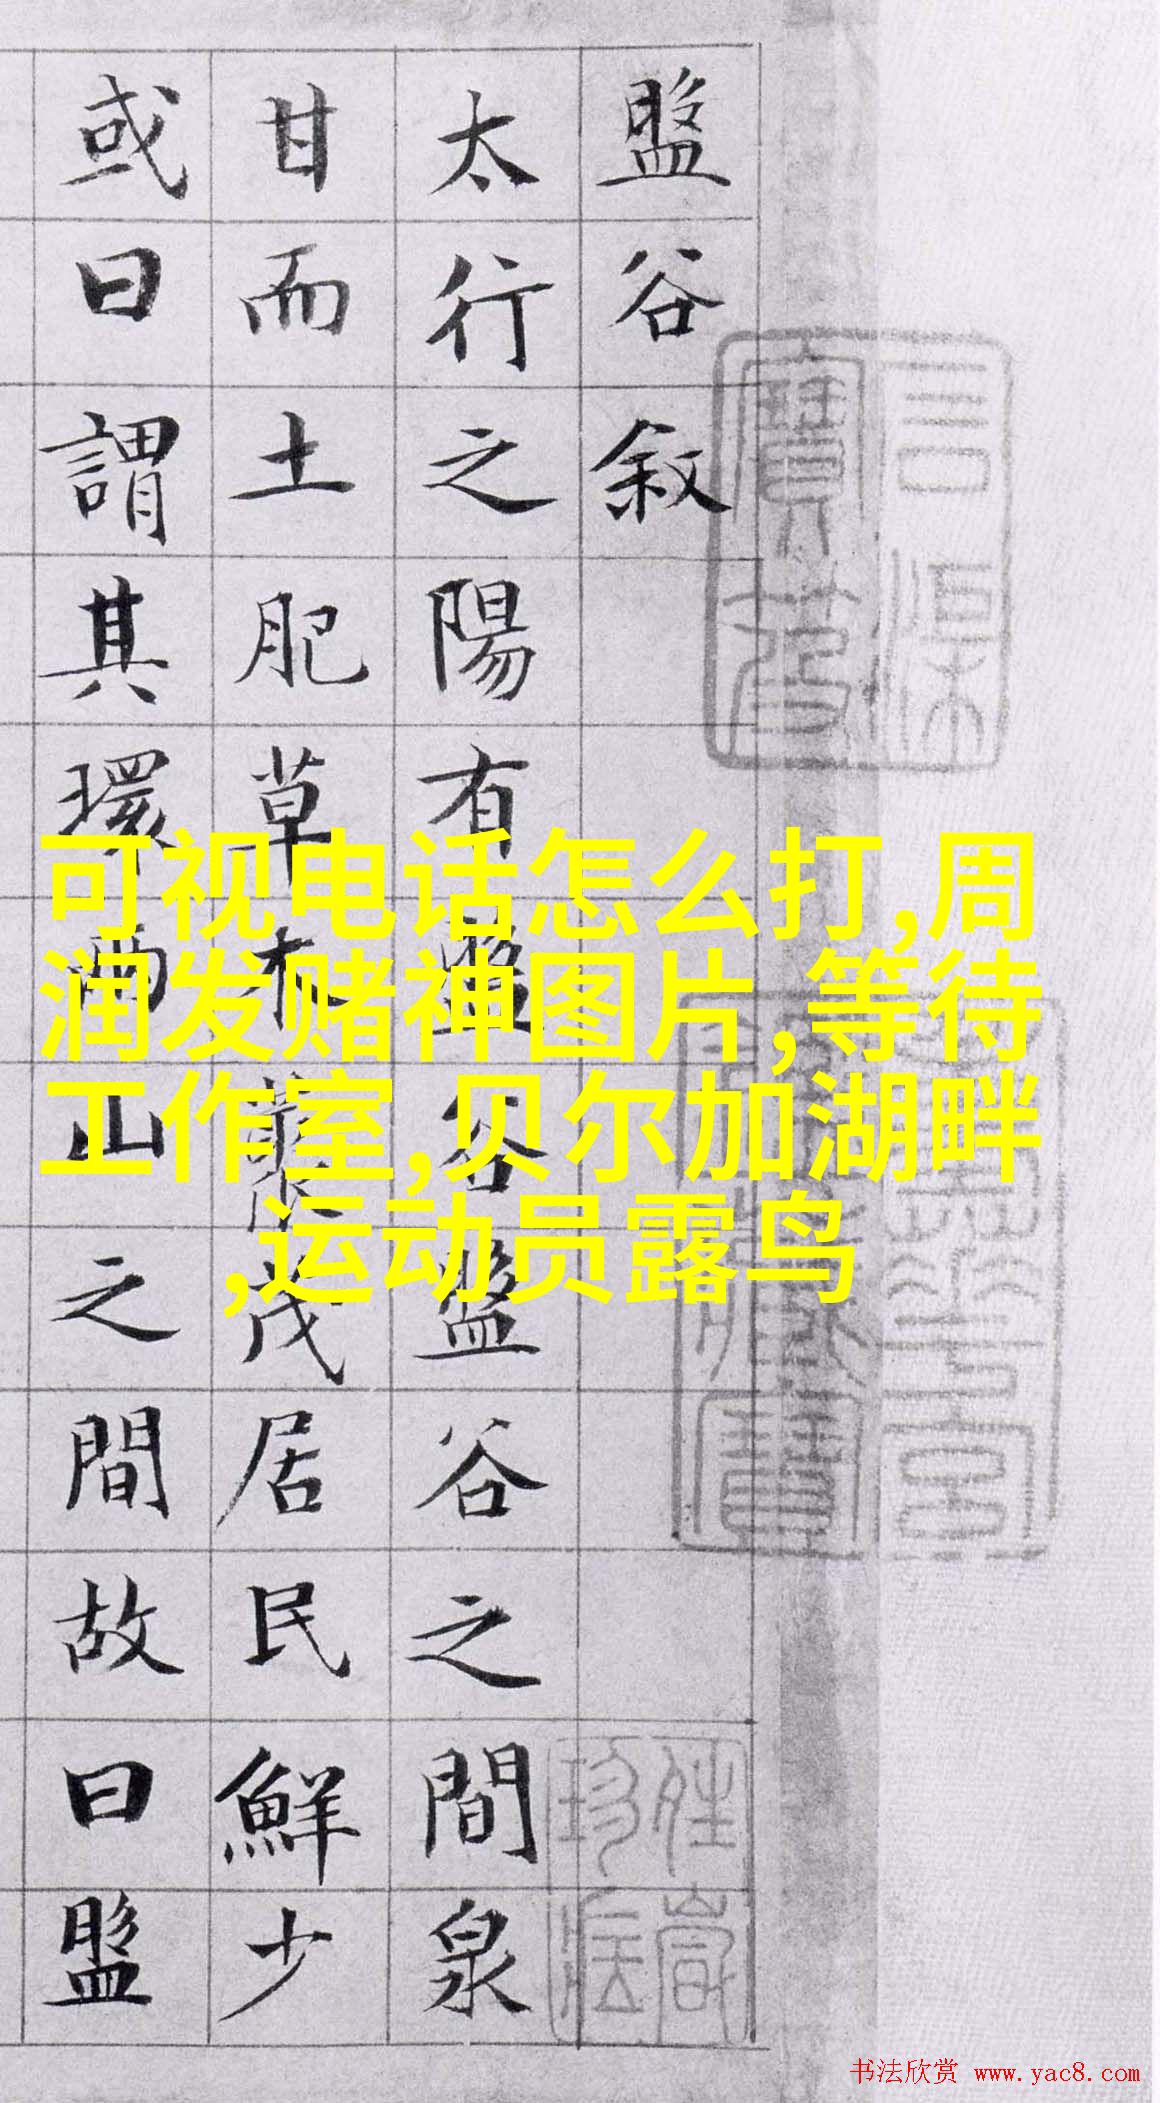 盤谷敘
太行之陽有盤谷盤谷之間泉
甘而土肥草木叢茂居民鮮少
或曰謂其環兩山之間故曰盤
可视电话怎么打,周
润发赌神图片,等待
工作室,贝尔加湖畔
,运动员露鸟
书法欣赏 www.yac8.com